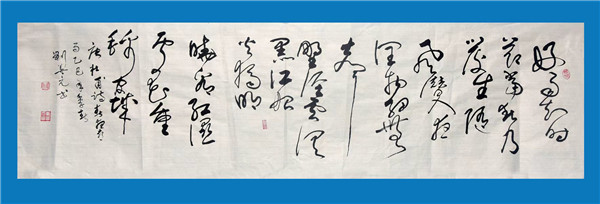 好雨知时
节当春乃
发生随
风潜入夜
润物细无
声
野径云俱
黑江船
火独明
晓看红湿
处花重
锦官城
唐杜甫诗春夜喜雨
乙巳年